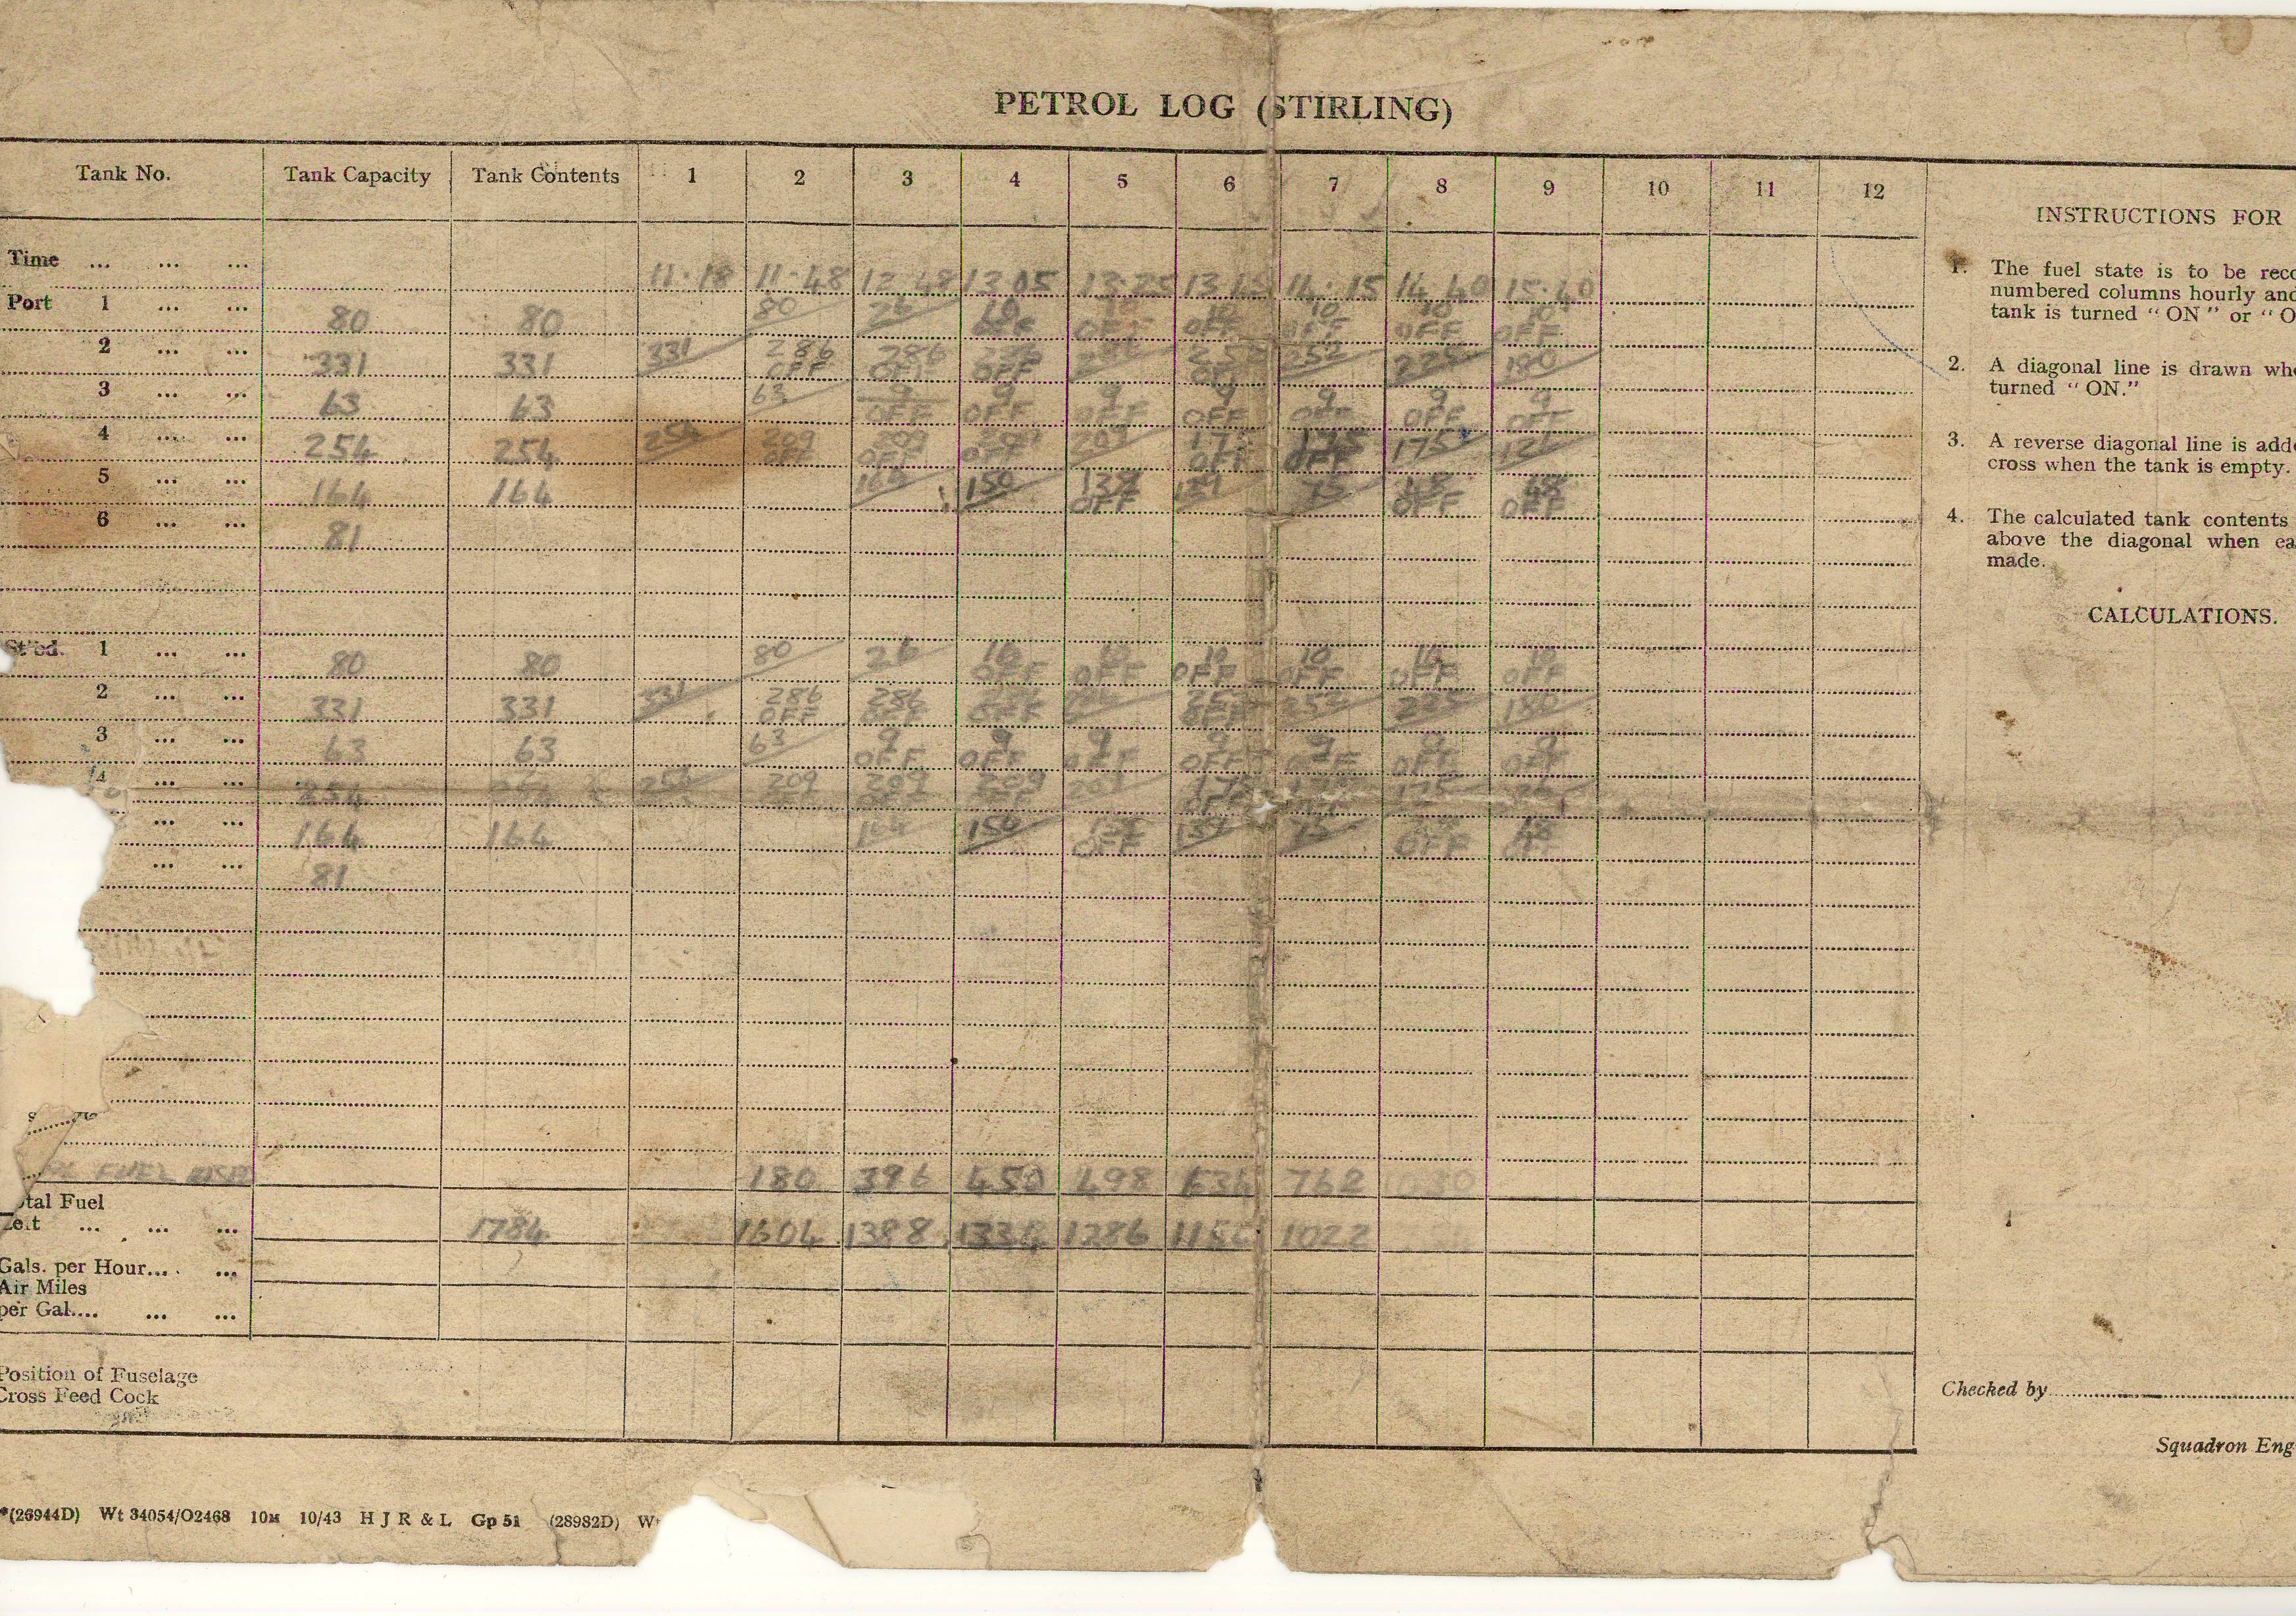 PETROL LOG (STIRLING)
Tank No. Tank Capacity Tank Contents 1 2 3 4 5 6 7 8 9 10 11 12
Time ... ... ... 11·18 11·48 12·48 13 05 13·25 14·15 14 40 15·40
Port 1 ... ... 80 80 80 26 10 OFF OFF 10 OFF 10 OFF 10 OFF 10 OFF
2 ... ... 331 331 331 286 OFF 286 OFF 286 OFF 286 252 OFF 252 225 180
3 ... ... 63 63 63 9 OFF 9 OFF 9 OFF 9 OFF 9 OFF 9 OFF 9 OFF
4 ... ... 254 254 254 209 OFF 209 OFF 209 OFF 209 175 OFF 175 OFF 175
5 ... ... 164 164 164 150 OFF 75 OFF 48 OFF
6 ... ... 81
St'bd. 1 ... ... 80 80 80 26 10 OFF 10 OFF 10 OFF 10 OFF 10 OFF 10 OFF
2 ... ... 331 331 331 286 OFF 286 OFF OFF OFF 252 225 180
3 ... ... 63 63 63 9 OFF 9 OFF 9 OFF 9 OFF 9 OFF 9 OFF 9 OFF
4 ... ... 254 254 254 209 209 OFF 209 209 175 OFF
... ... 164 164 164 150 OFF 139 75 OFF 48
... ... 81
FUEL 180 396 450 498 634 762
tal Fuel
Left ... ... ... 1784 1604 1388 1334 1286 1150 1022
Gals. per Hour.... ...
Air Miles
per Gal.... ... ...
Position of Fuselage
Cross Feed Cock
*(26944D) Wt 34054/O2468 10M 10/43 H J R & L Gp 51 (28982D) W
INSTRUCTIONS FOR
1. The fuel state is to be reco
numbered columns hourly and
tank is turned "ON" or "O
2. A diagonal line is drawn whe
turned "ON."
3. A reverse diagonal line is adde
cross when the tank is empty.
4. The calculated tank contents
above the diagonal when ea
made.
CALCULATIONS.
Checked by
Squadron Eng